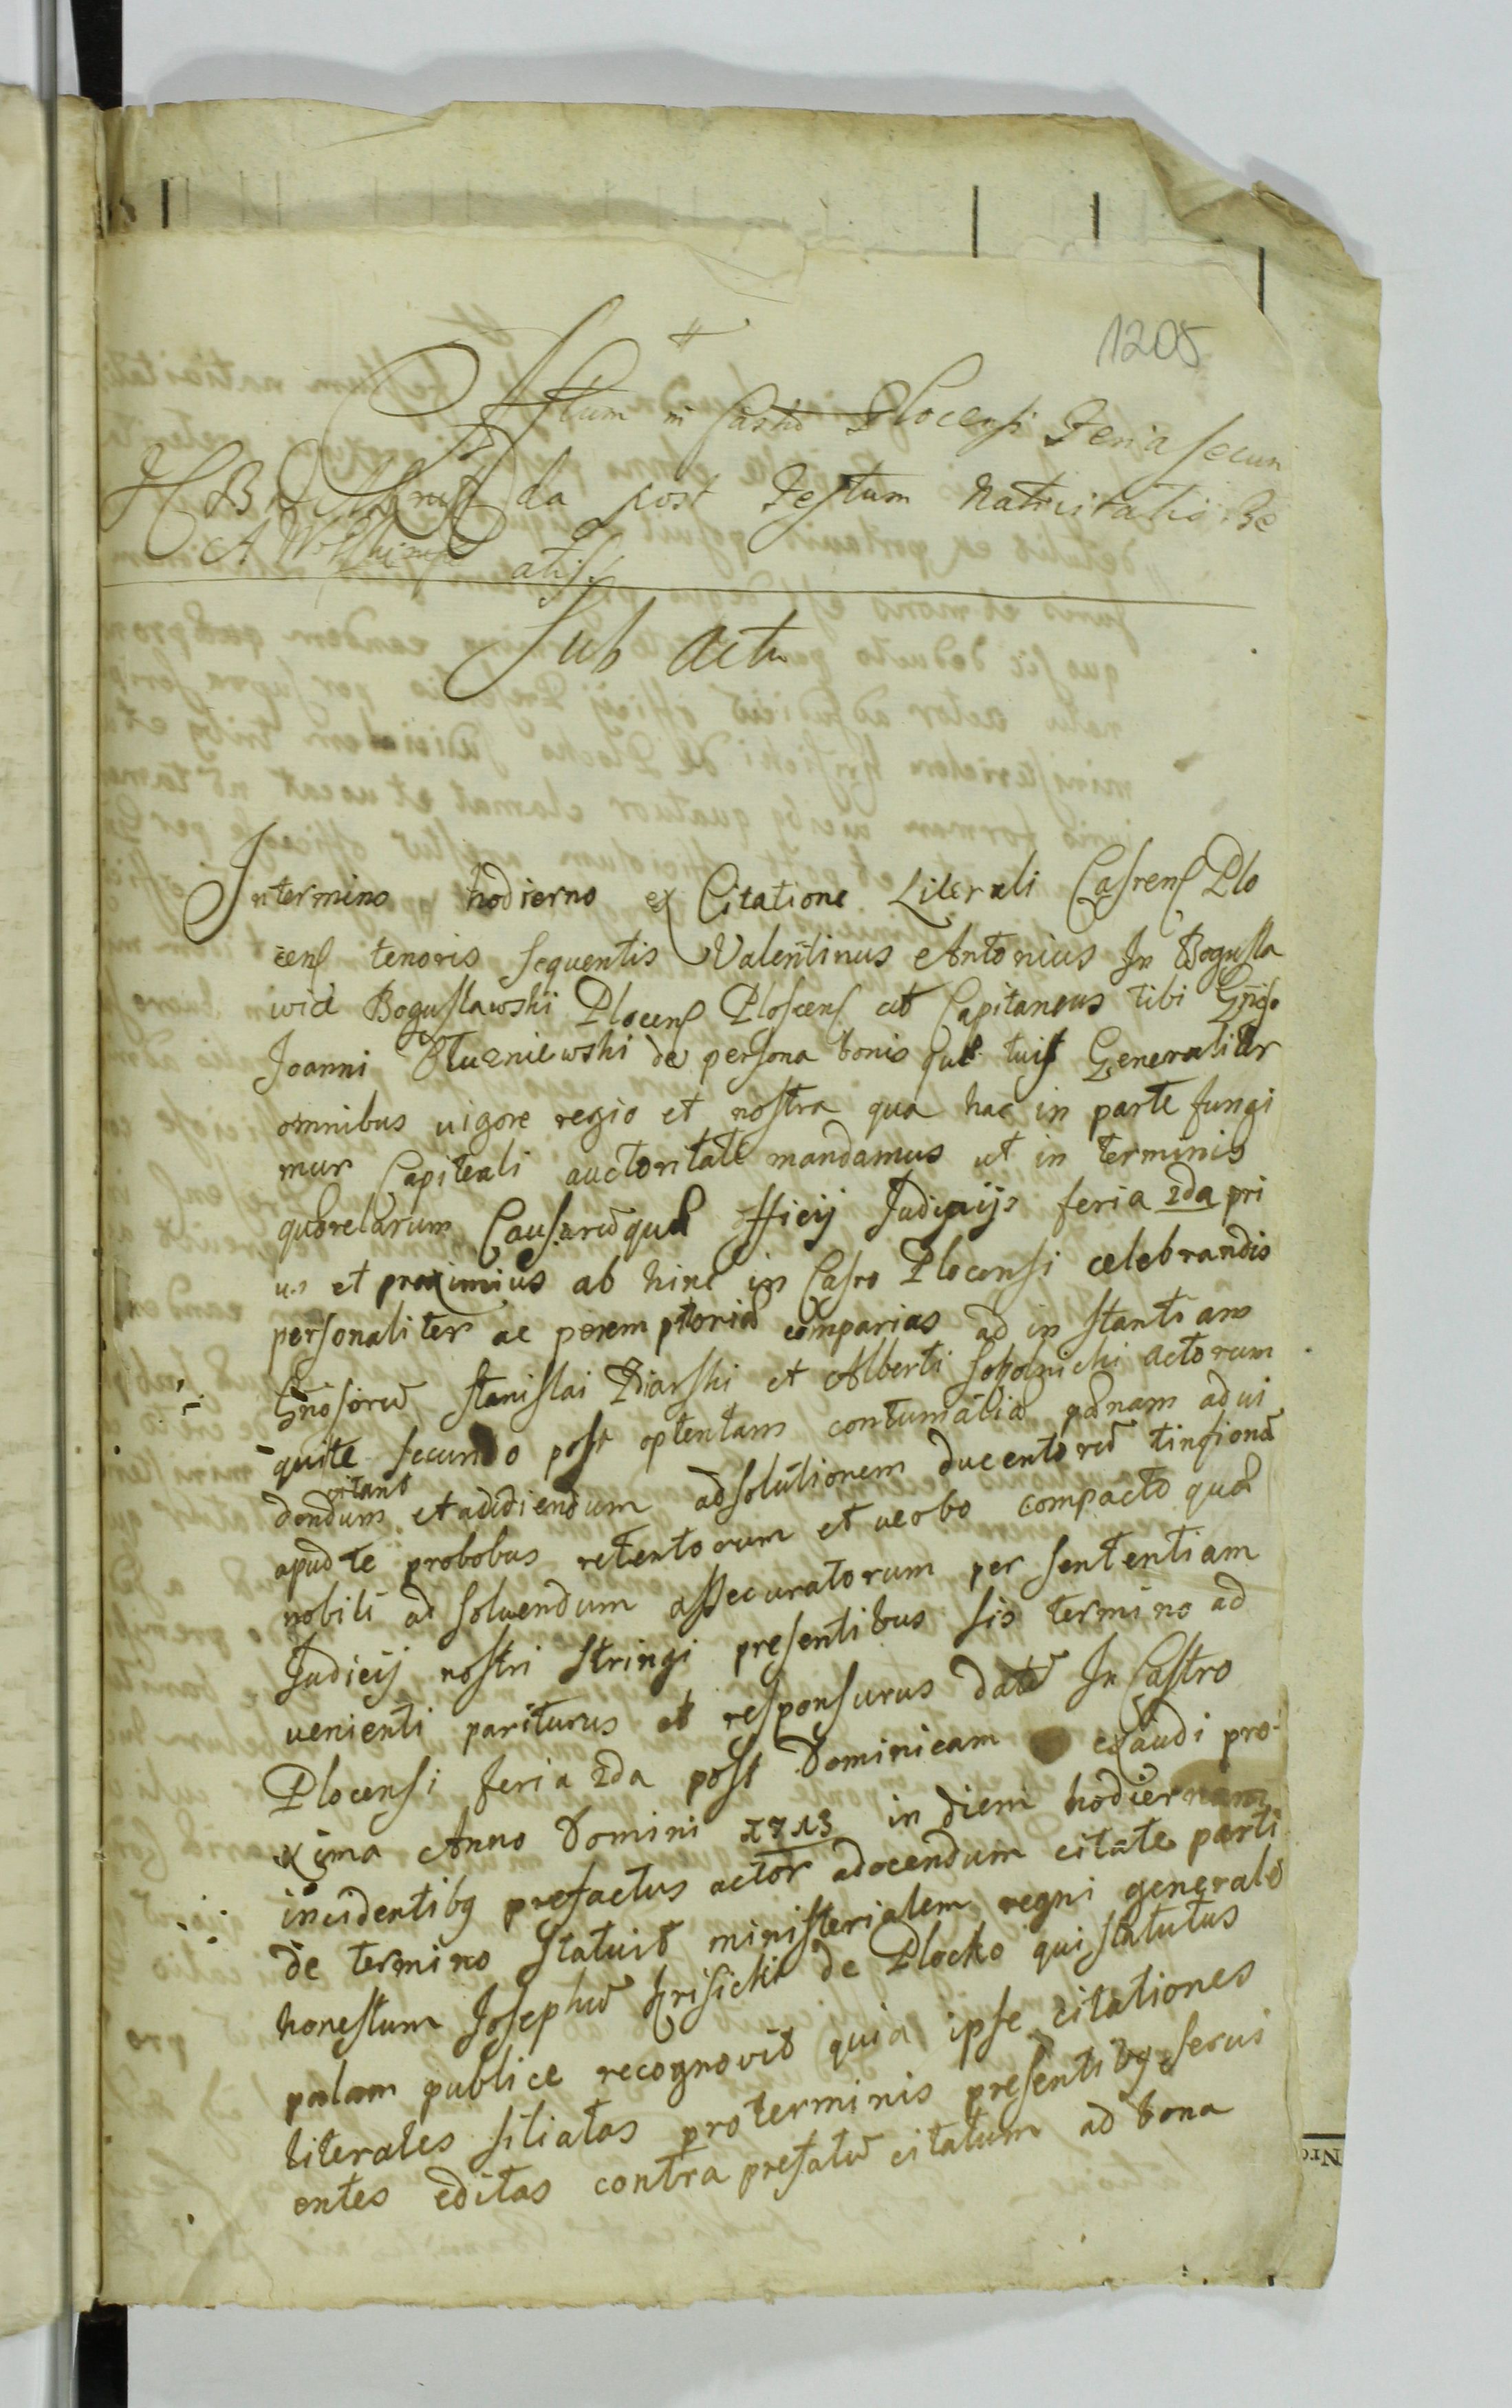 1205
Actum in Castro Plocensi Feria secun
da post Festum Natiuitatis Be
atiss
Sub Actu
In termino hodierno ex Citatione Literali Casrens Plo
cens tenoris sequentis Valentinus Antonius In Bogusla
wice Boguslawski Plocens Ploscens et Capitaneus tibi Gnoso
Joanni de persona bonis que tuis Generaliter
omnibus uigore regio et nostra qua hac in parte fungi
mur Capiteali auctoritate mandamus ut in terminis
querelarum Causarūque officij Judicijs feria 2da pri
us et proximius ab hinc in Casro Plocensi celebrandis
personaliter ac peremptorie comparias ad in stantiam
Gnosorū Stanislai Piarski et Alberti actorum
quite secundo post optentam contumatia penam ad ui
dendum citant et addiendum adsolutionem ducentorū tinfione
apud te probobus retentorum et uerbo compacto que
nobili ad soluendum assecuratorum per sententiam
Judicij nostri stringi presentibus sis termino ad
uenienti pariturus et responsurus datū In Castro
Plocensi feria 2da post Dominicam exaudi pro
xima Anno Domini 1713 in diem hodiernam
incidentibq prefactus actor adocendum citate parti
de termino statuit ministerialem regni generale
honestum Josephū Krisicki de Plocko qui statutus
palam publice recognovit quia ipse citationes
literales siliatas proterminis presentibq serui
entes editas contra prefatū citatum ad bona
Nro